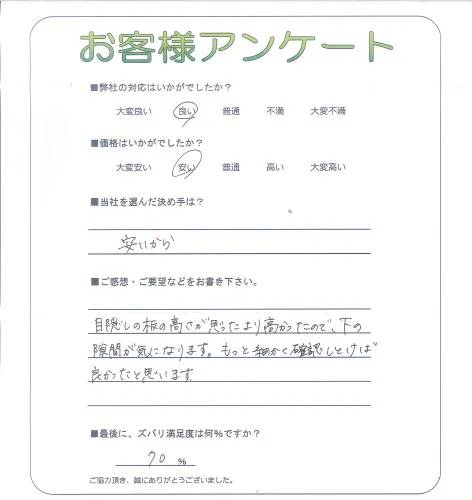 お客様アンケート
■弊社の対応はいかがでしたか？
大変良い 良い 普通 不満 大変不満
■価格はいかがでしたか？
大変安い 安い 普通 高い 大変高い
■当社を選んだ決め手は？
安いから
■ご感想・ご要望などをお書き下さい。
目隠しの板の高さが思ったより高かったので、下の
隙間が気になります。もっと細かく確認しとけば
良かったと思います
■最後に、ズバリ満足度は何％ですか？
70 ％
ご協力頂き、誠にありがとうございました。